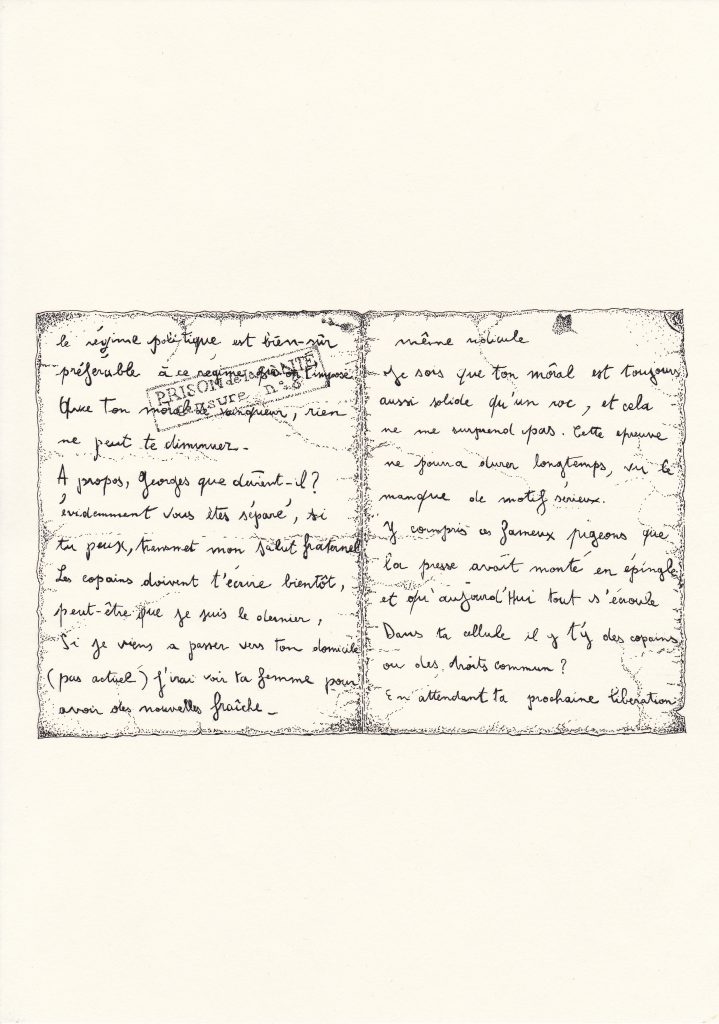 le régime politique est bien sûr
préférable à ce régime t'impose
Que ton moral vainqueur, rien
ne peut te diminuer.
A propos, Georges que devient-il?
évidemment vous êtes séparé, si
tu peux, transmet mon salut fraternel
Les copains doivent t'écrire bientôt,
peut-être que je suis le dernier,
Si je viens a passer vers ton domicile
(pas actuel) j'irai voir ta femme pour
avoir des nouvelles fraîche_
PRISON de la SANTE
Censure n°:
même ridicule
Je sais que ton môral est toujours
aussi solide qu'un roc, et cela
ne me surprend pas. Cette epreuve
ne pourra durer longtemps, vu le
manque de motif serieux.
Y compris ces fameux pigeons que
la presse avait monté en épingle
et qu'aujourd'Hui tout s'écroule
Dans ta cellule il y t'y des copains
ou des droits commun?
En attendant ta prochaine libération